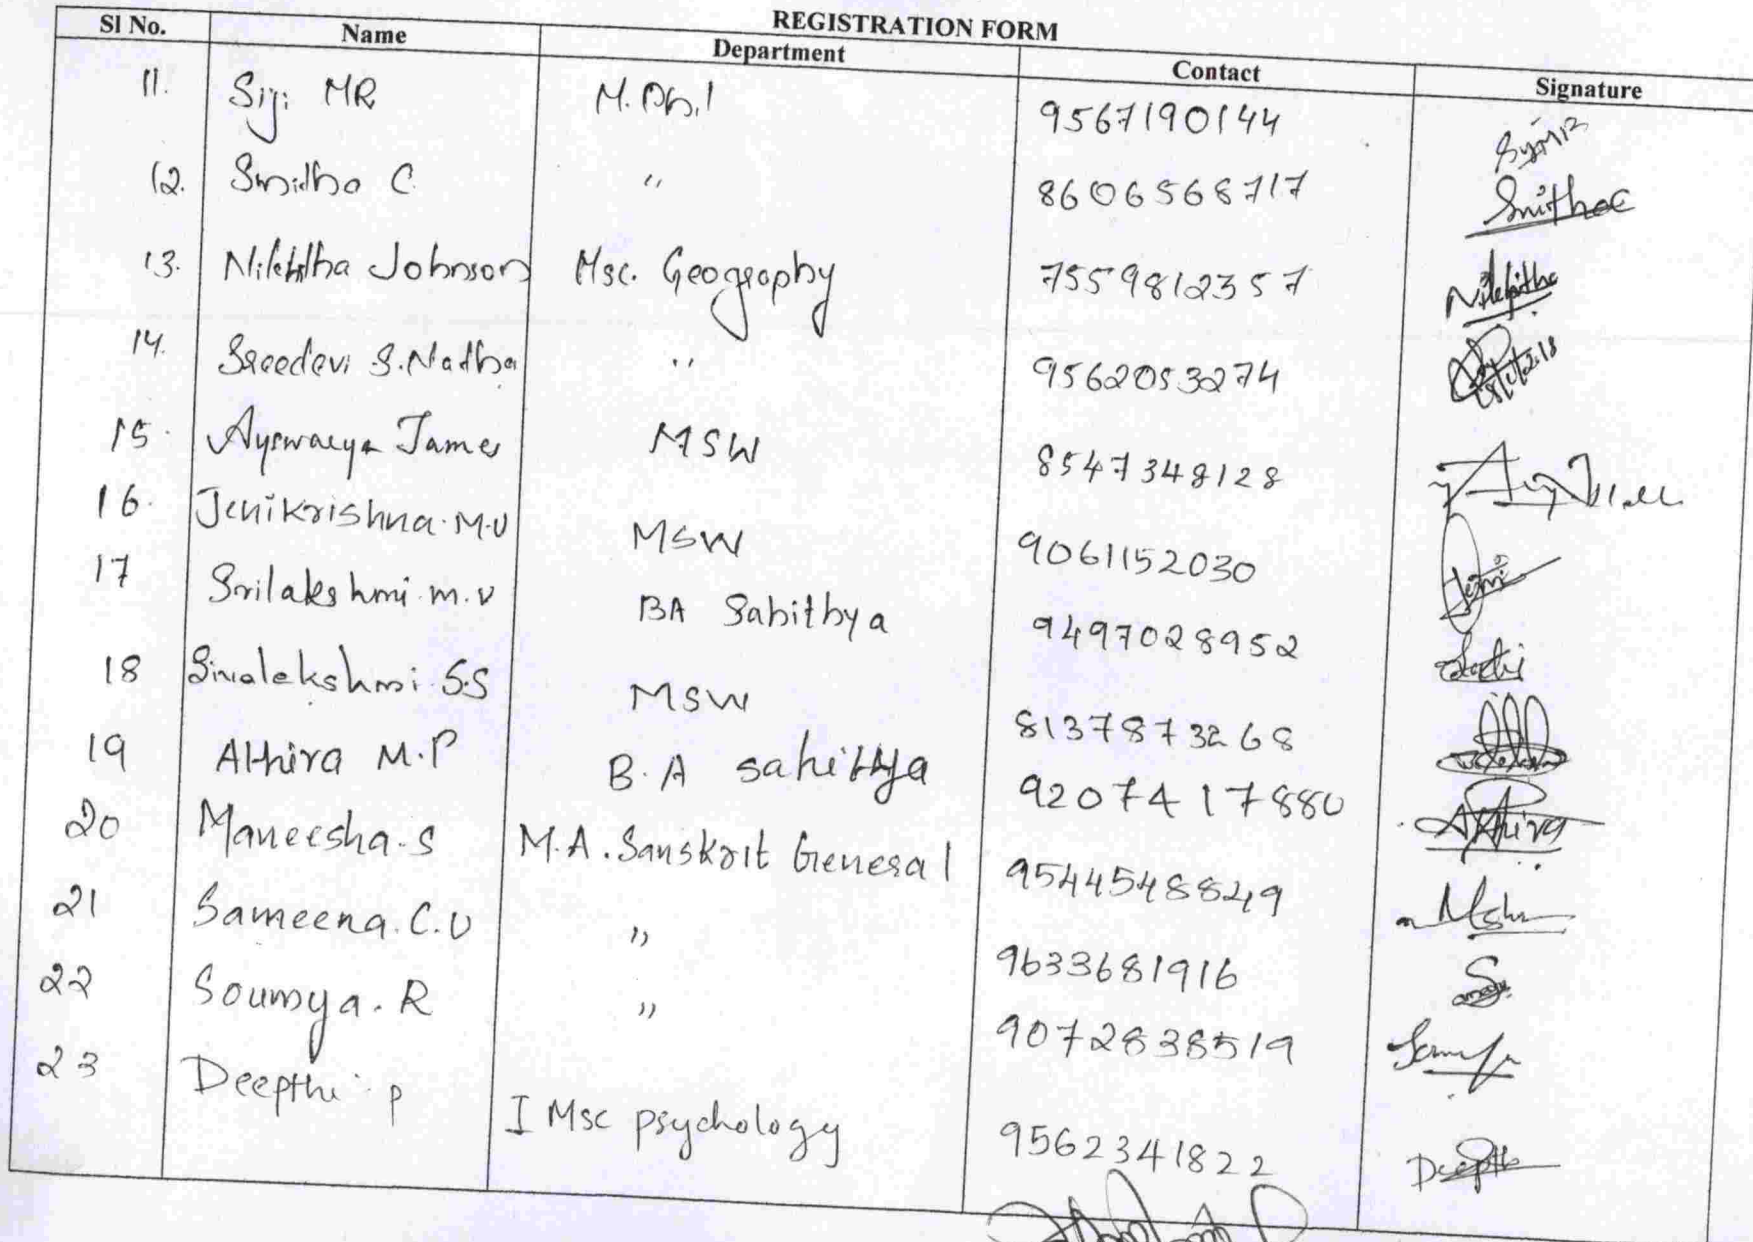 REGISTRATION FORM
Sl No. Name Department Contact Signature
11. Siji MR M.Phil 9567190144 SijiMR
12. Smidha C " 8606568717 SmithaC
13. Nikhitha Johnson Msc. Geography 7559812357 Nikhitha
14. Sreedevi S.Nadha " 9562053274
15. Ayswarya James MSW 8547348128
16. Jenikrishna.M.U MSW 9061152030 Jeni
17 Srilakshmi.m.v BA Sahithya 9497028952
18 Sivalekshmi.S.S MSW 8137873268
19 Athira M.P B.A sahithya 9207417880 Athira
20 Maneesha.S M.A.Sanskrit General 9544548849
21 Sameena.C.U " 9633681916
22 Soumya.R " 9072838519
23 Deepthi p I Msc psychology 9562341822 Deepthi